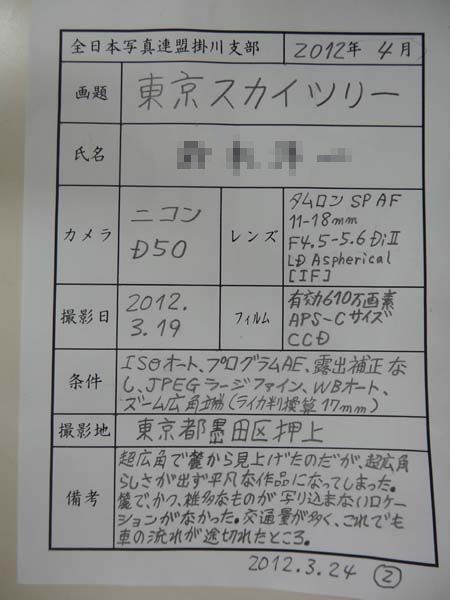 全日本写真連盟掛川支部 2012年 4月
画題 東京スカイツリー
氏名
カメラ ニコン D50
レンズ タムロン SP AF
11-18mm
F4.5-5.6 DiⅡ
LD Aspherical
[IF]
撮影日 2012.
3.19
フィルム 有効610万画素
APS-Cサイズ
CCD
条件 ISOオート、プログラムAE、露出補正な
し、JPEGラージファイン、WBオート、
ズーム広角端(ライカ判換算17mm)
撮影地 東京都墨田区押上
備考 超広角で麓から見上げたのだが、超広角
らしさが出ず平凡な作品になってしまった。
麓で、かつ、雑多なものが写り込まないロケー
ションがなかった。交通量が多く、これでも
車の流れが途切れたところ。
2012.3.24 ②